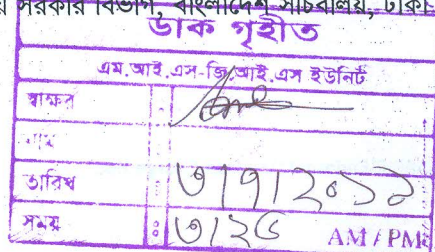 সরকার বিভাগ, বাংলাদেশ সচিবালয়, ঢাকা-
ডাক গৃহীত
এম.আই.এস-জি.আই.এস ইউনিট
স্বাক্ষর :
নাম :
তারিখ : ৩/৭/২০১১
সময় : ৩/২৫ AM / PM